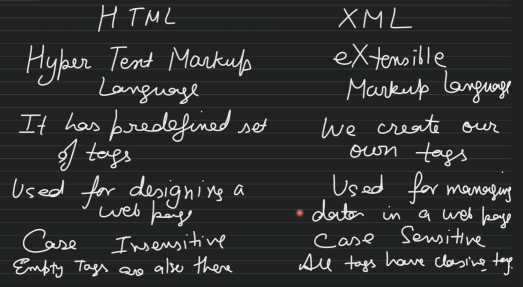 HTML
XML
Hyper Text Markup
Language
eXtensible
Markup Language
It has predefined set
of tags
We create our
own tags
Used for designing a
web page
Used for managing
data in a web page
Case Insensitive
Case Sensitive
Empty Tags are also there
All tags have closing tag.